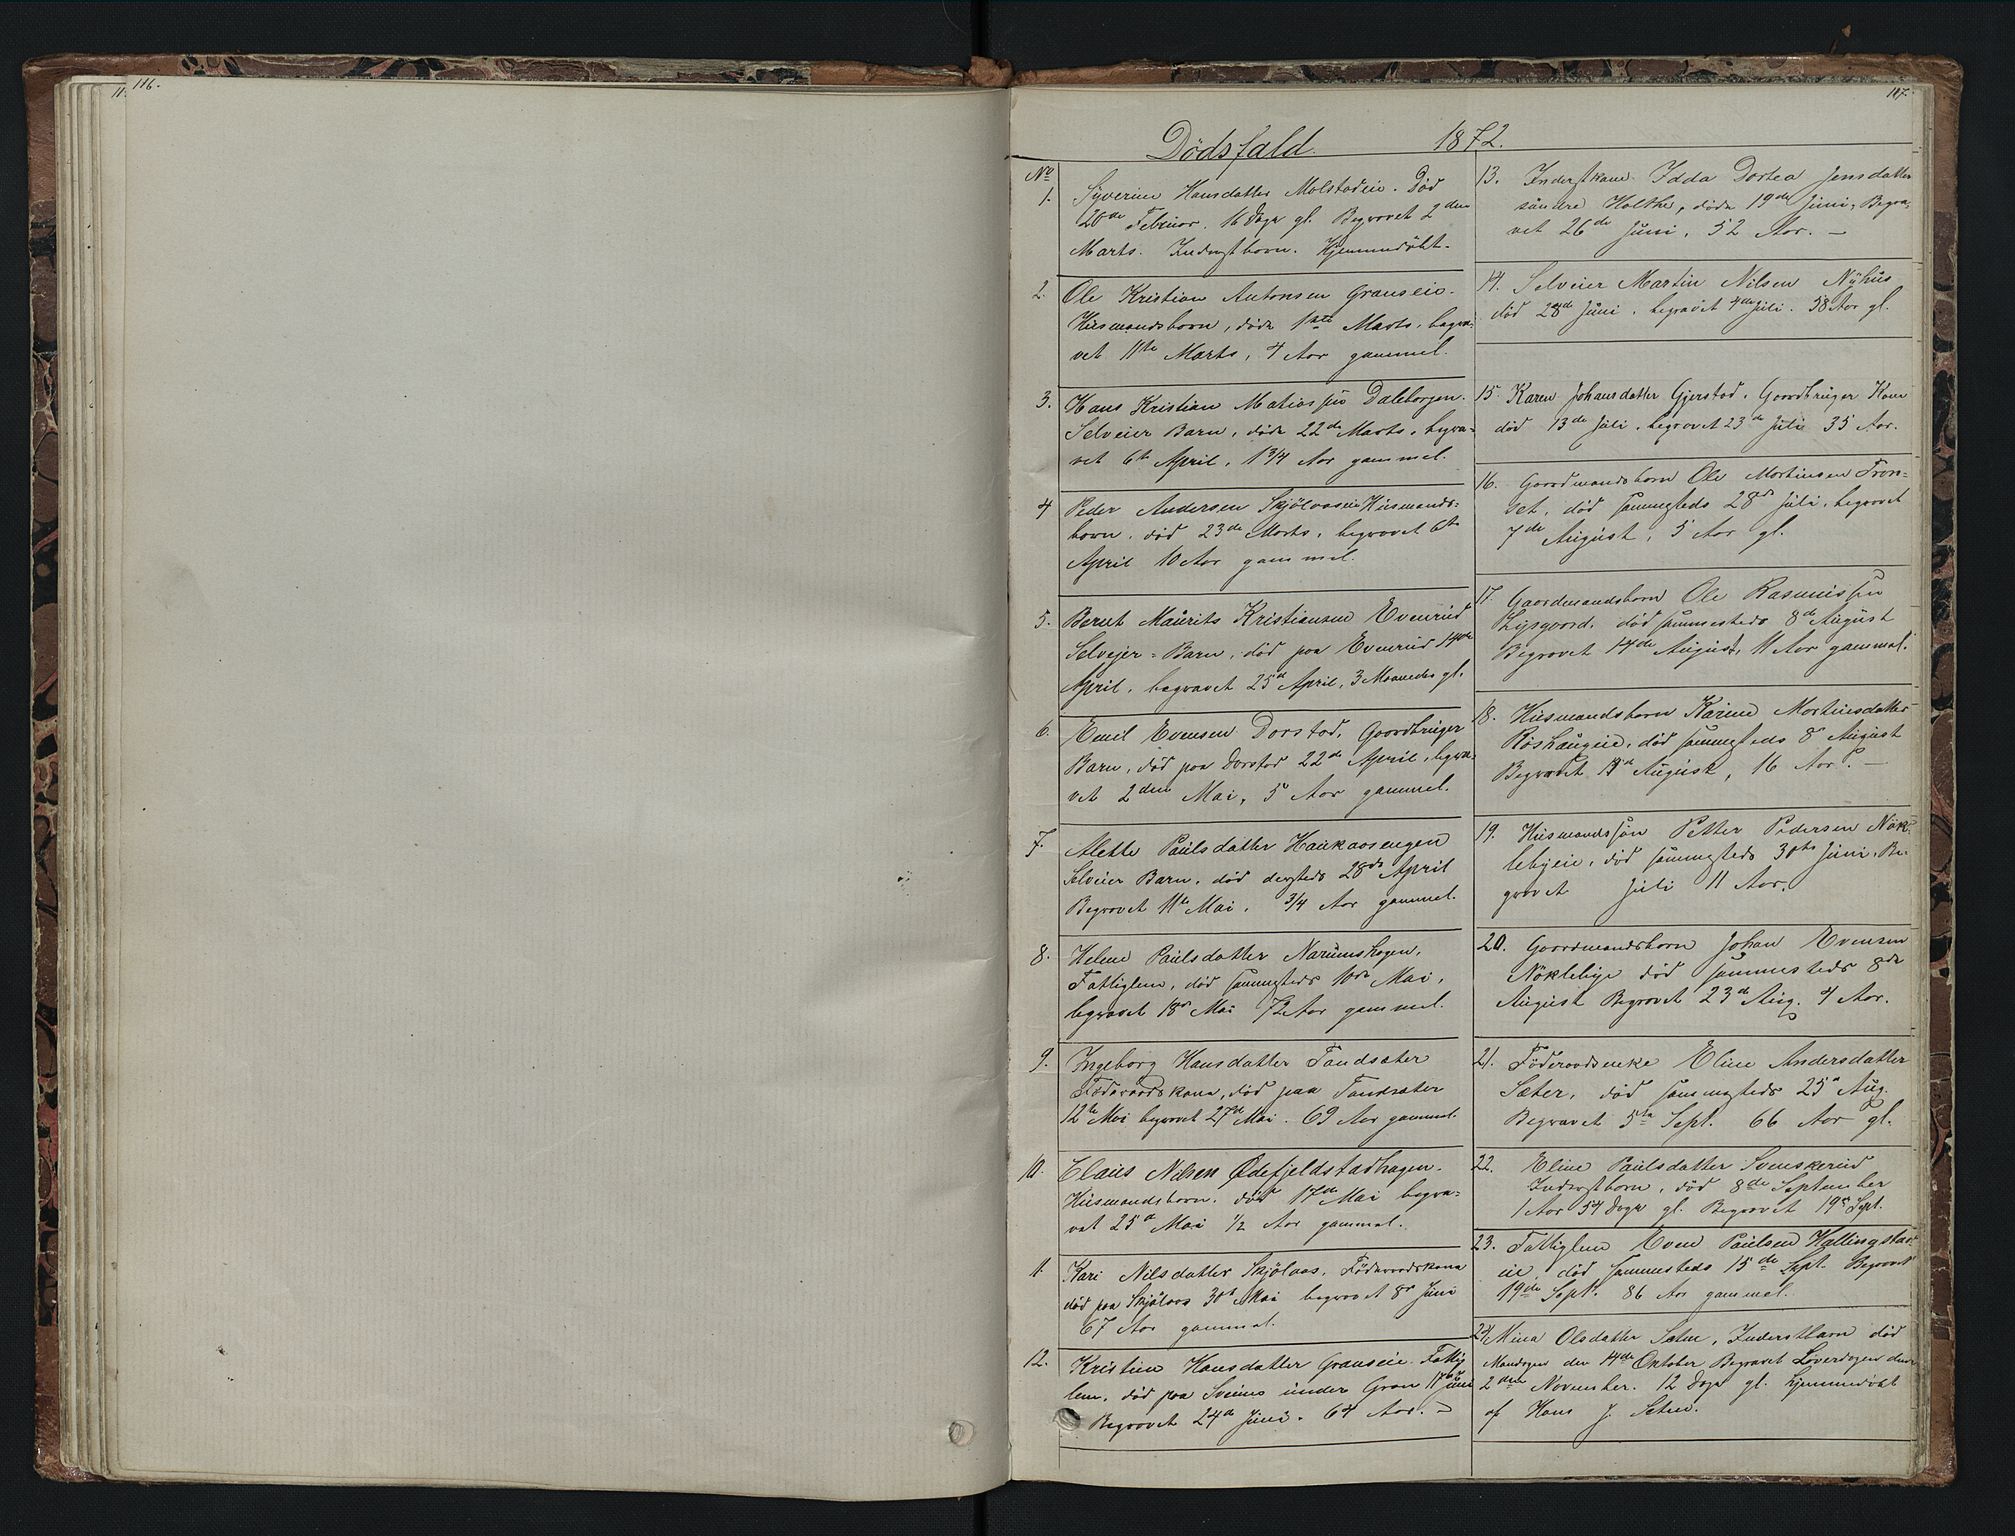 116.
117.
Dödsfald. 1872.
No
1. Syverine Hansdatter Molstadeie. Död
20de Februar. 16 Dage gl. Begravet 2den
Marts. Inderstbarn. Hjemmedöbt.
2. Ole Kristian Antonsen Granseie.
Husmandsbarn, döde 1ste Marts, begra-
vet 11te Marts, 4 Aar gammel.
3. Hans Kristian Matiassen Daleborgen.
Selveier Barn, döde 22de Marts, begra-
vet 6te April, 1 3/4 Aar gammel.
4 Peder Andersen Skjölaaseie Husmands-
barn, död 23de Marts, begravet 6te
April 10 Aar gammel.
5. Bernt Maurits Kristiansen Evenrud
Selvejer-Barn, död paa Evenrud 14de
April, begravet 25de April, 3 Maaneder gl.
6. Emil Evensen Dorstad, Gaardbruger
Barn, död paa Dorstad 22de April, begra-
vet 2den Mai, 5 Aar gammel.
7. Alette Paulsdatter Haukaasengen
Selveier Barn, död dersteds 28de April
Begravet 11te Mai, 3/4 Aar gammel.
8. Helene Paulsdatter Narumshagen,
Fattiglem, död sammesteds 10de Mai,
begravet 18de Mai 72 Aar gammel.
9. Ingeborg Hansdatter Tandsæter
Föderaadskone, död paa Tandsæter
12te Mai begravet 27de Mai. 69 Aar gammel.
10. Claus Nilsen Ödefjeldstadhagen.
Husmandsbarn, död 17de Mai begra-
vet 25de Mai 1/2 Aar gammel.
11. Kari Nilsdatter Skjölaas, Föderaadskone
död paa Skjölaas 30te Mai begravet 8de Juni
67 Aar gammel.
12. Kristine Hansdatter Granseie. Fattig
lem, död paa Sveins under Gran 17de Juni
Begravet 24de Juni. 64 Aar.
13. Inderstkone Idda Dortea Jensdatter
söndre Holthe, döde 19de Juni, Begra-
vet 26de Juni, 52 Aar. —
14. Selveier Martin Nilsen Nyhus
död 28de Juni, begravet 4de Juli. 58 Aar gl.
15. Karen Johansdatter Gjerstad. Gaardbruger Kone
död 13de Juli, begravet 23de Juli 35 Aar.
16. Gaardmandsbarn Ole Martinsen Tron-
set, död sammesteds 28de Juli, begravet
7de August, 5 Aar gl.
17. Gaardmandsbarn Ole Rasmussen
Lysgaard, död sammesteds 8de August
Begravet 14de August, 11 Aar gammel.
18. Husmandsbarn Karine Martinsdatter
Röshaugeie, död sammesteds 8de August
Begravet August, 16 Aar. —
19. Husmandssön Petter Pedersen Nök-
lebyeie, död sammesteds 30te Juni, Be-
gravet Juli 11 Aar.
20. Gaardmandsbarn Johan Evensen
Nöklebye död sammesteds 8de
August Begravet 23de Aug. 4 Aar.
21. Föderaadsenke Eline Andersdatter
Sæter, död sammesteds 25de Aug.
Begravet 5te Sept. 66 Aar gl.
22. Eline Paulsdatter Svenskerud
Inderstbarn, död 8de September
1 Aar 54 Dage gl. Begravet 19de Sept.
23. Fattiglem Even Paulsen Hallingstad-
eie, död sammesteds 15de Sept. Begravet
19de Sept. 86 Aar gammel.
24. Mina Olsdatter Sætre, Inderstbarn död
Mandagen den 14de Oktober Begravet Löverdagen den
2den November. 12 Dage gl. hjemmedöbt
af Hans J. Sætre.